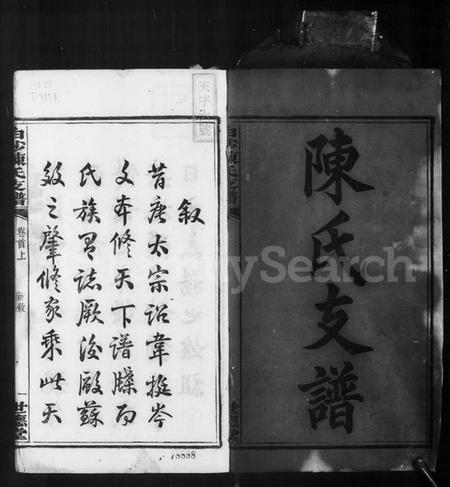 陳氏支譜
天字 號
叙
昔唐太宗詔韋挺岑
文本修天下譜牒而
氏族 誌厥後歐蘇
效之肇修家乘此天
白沙陳氏支譜
卷首上
新敘
一
世德堂
18888
MySearch